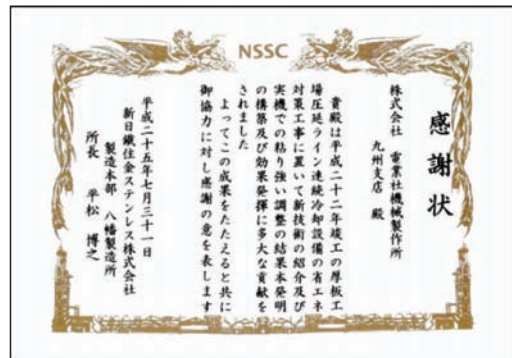 NSSC
感謝状
株式会社 電業社機械製作所
九州支店 殿
貴殿は平成二十二年竣工の厚板工
場圧延ライン連続冷却設備の省エネ
対策工事に置いて新技術の紹介及び
実機での粘り強い調整の結果本発明
の構築及び効果発揮に多大な貢献を
されました
よってこの成果をたたえると共に
御協力に対し感謝の意を表します
平成二十五年七月三十一日
新日鐵住金ステンレス株式会社
製造本部 八幡製造所
所長 平松 博之